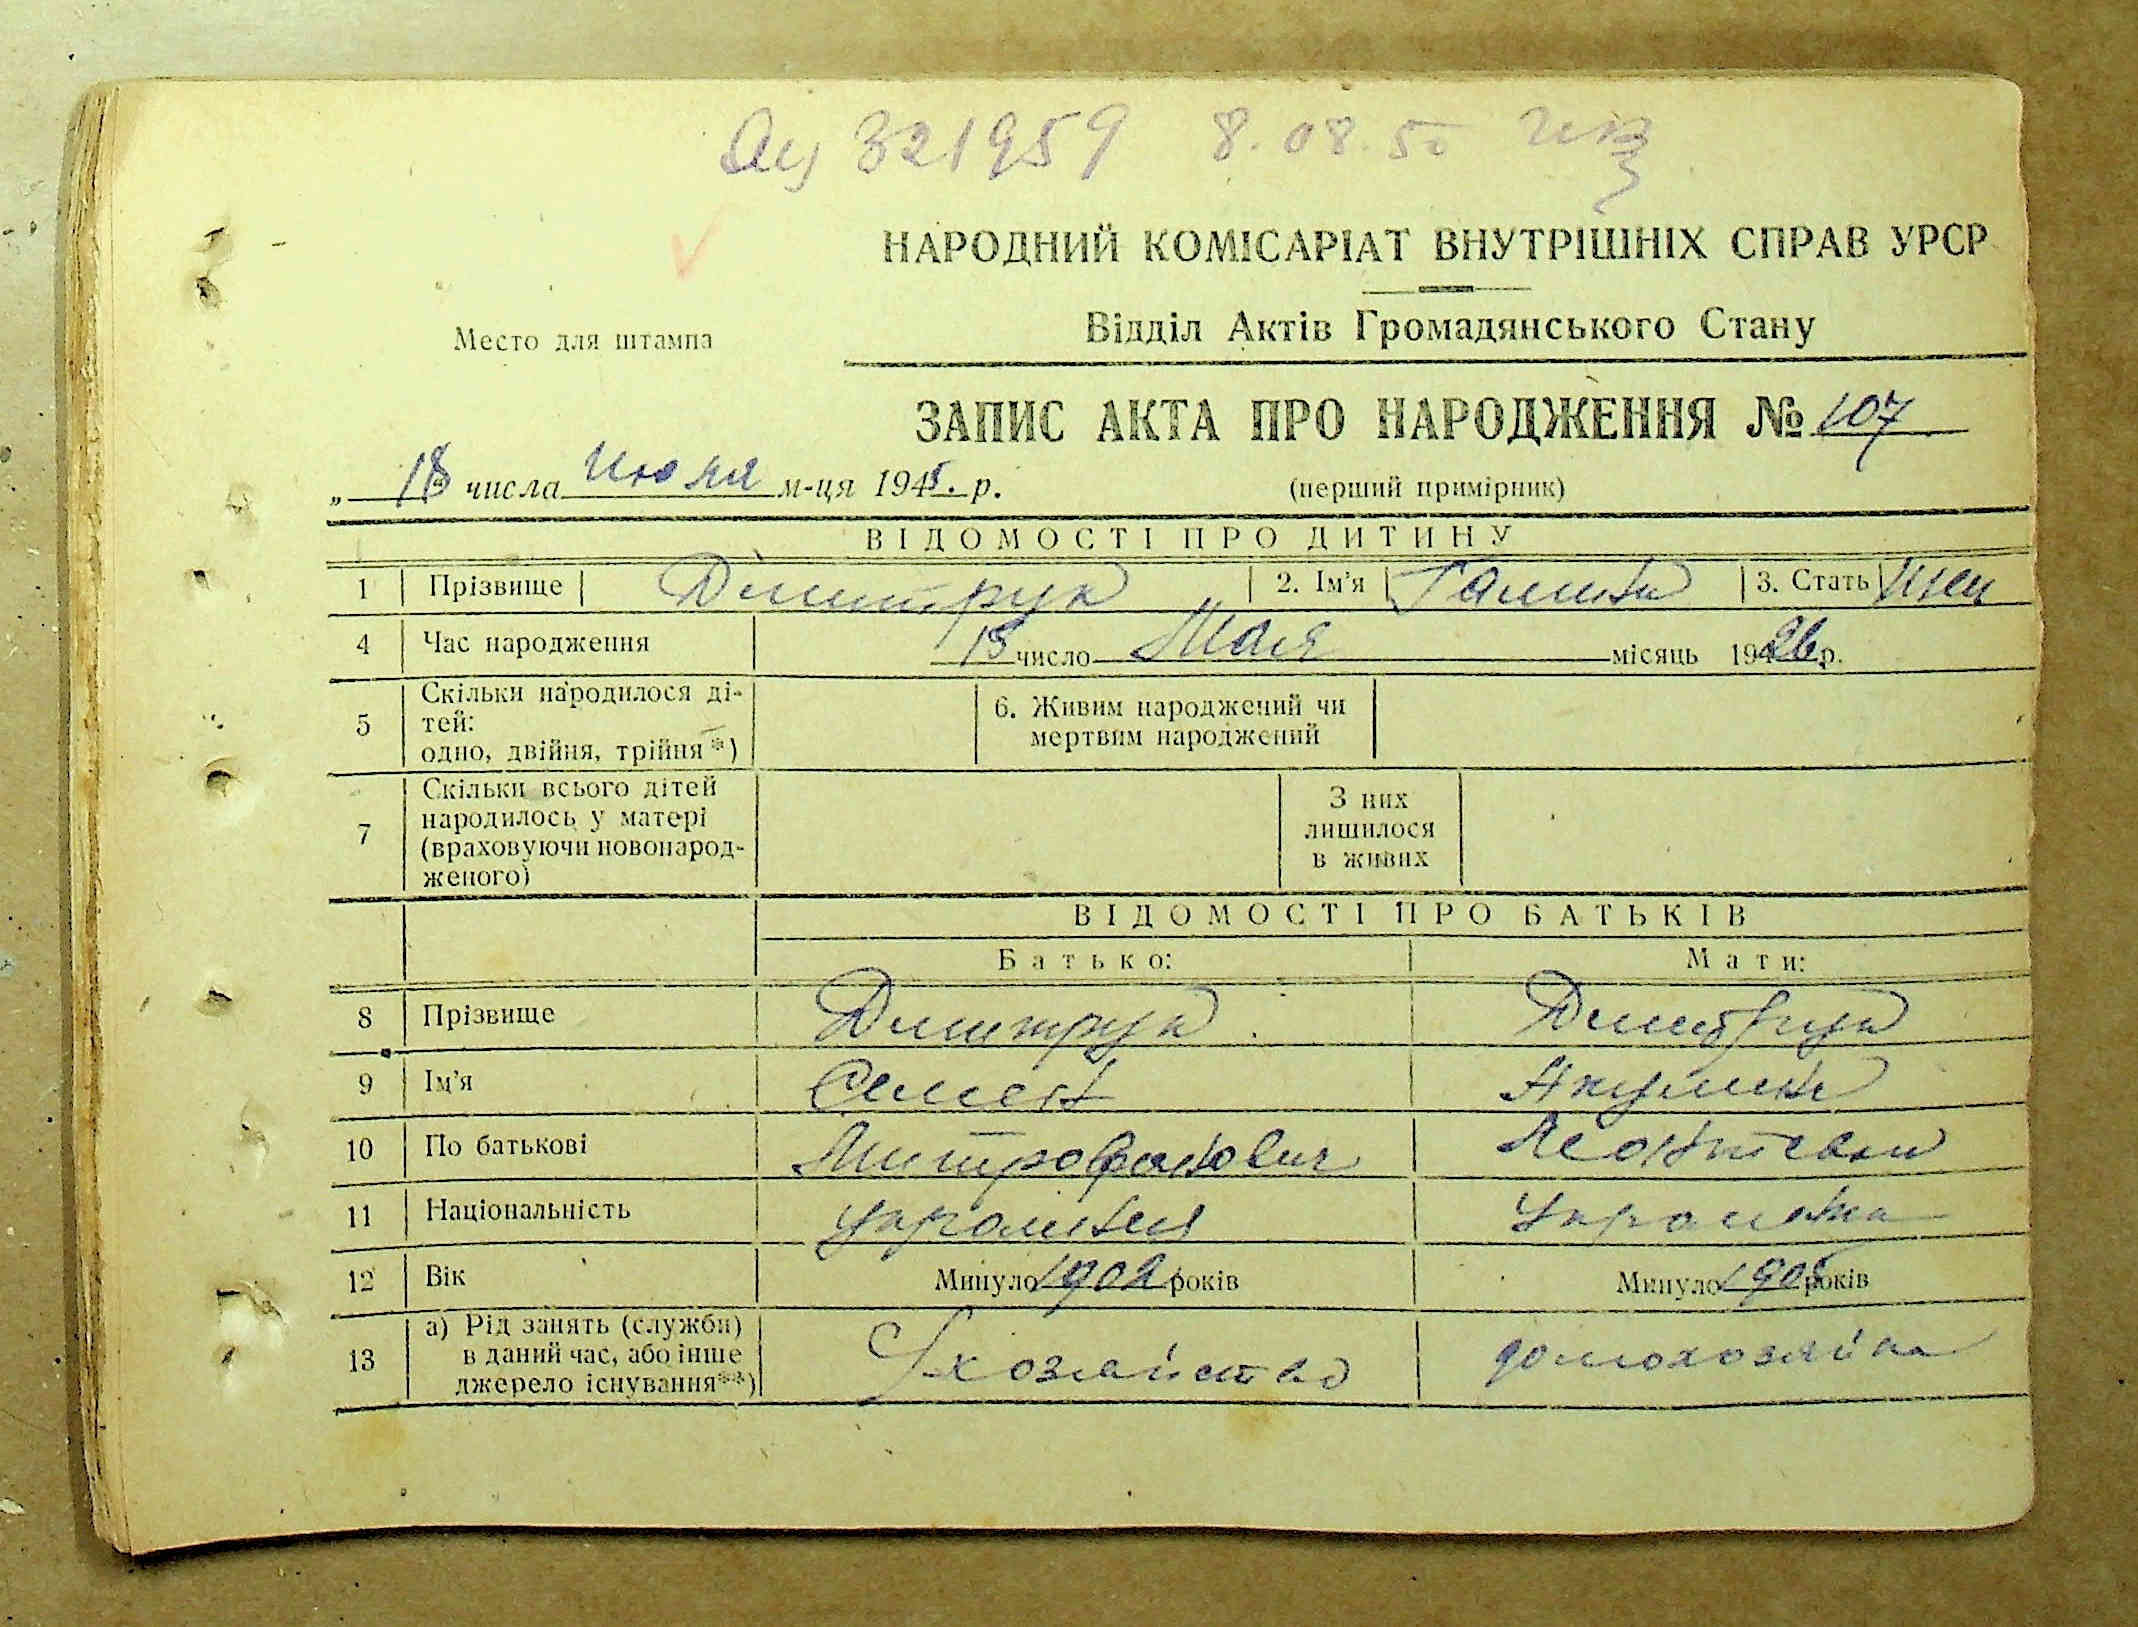 321959 8.08.50
НАРОДНИЙ КОМІСАРІАТ ВНУТРІШНІХ СПРАВ УРСР
Відділ Актів Громадянського Стану
Место для штампа
ЗАПИС АКТА ПРО НАРОДЖЕННЯ № 107
„ 18 числа Июля м-ця 1945. р. (перший примірник)
ВІДОМОСТІ ПРО ДИТИНУ
1 Прізвище Димитрук 2. Ім'я Галина 3. Стать жен
4 Час народження 15 число Мая місяць 1926 р.
5 Скільки народилося ді-
тей:
одно, двійня, трійня*)
6. Живим народжений чи
мертвим народжений
7 Скільки всього дітей
народилось у матері
(враховуючи новонарод-
женого)
З них
лишилося
в живих
ВІДОМОСТІ ПРО БАТЬКІВ
Батько: Мати:
8 Прізвище Димитрук Димитрук
9 Ім'я Семен Акулина
10 По батькові Митрофанович Леонтевна
11 Національність украинец Украинка
12 Вік Минуло 1902 років Минуло 1905 років
13 а) Рід занять (служби)
в даний час, або інше
джерело існування**)
С/хозяйство домохозяйка